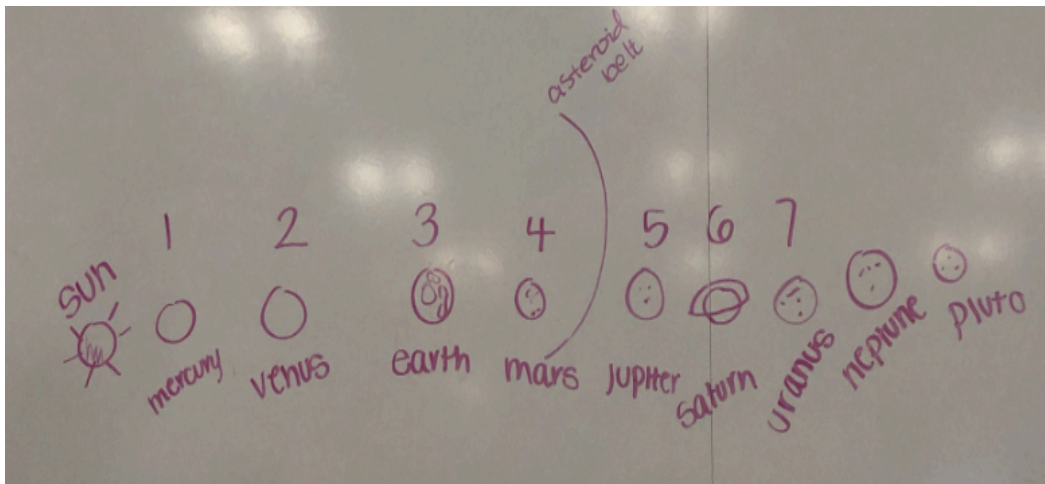 asteroid
belt
1 2 3 4 5 6 7
sun
mercury
venus
earth
mars
jupiter
saturn
uranus
neptune
pluto